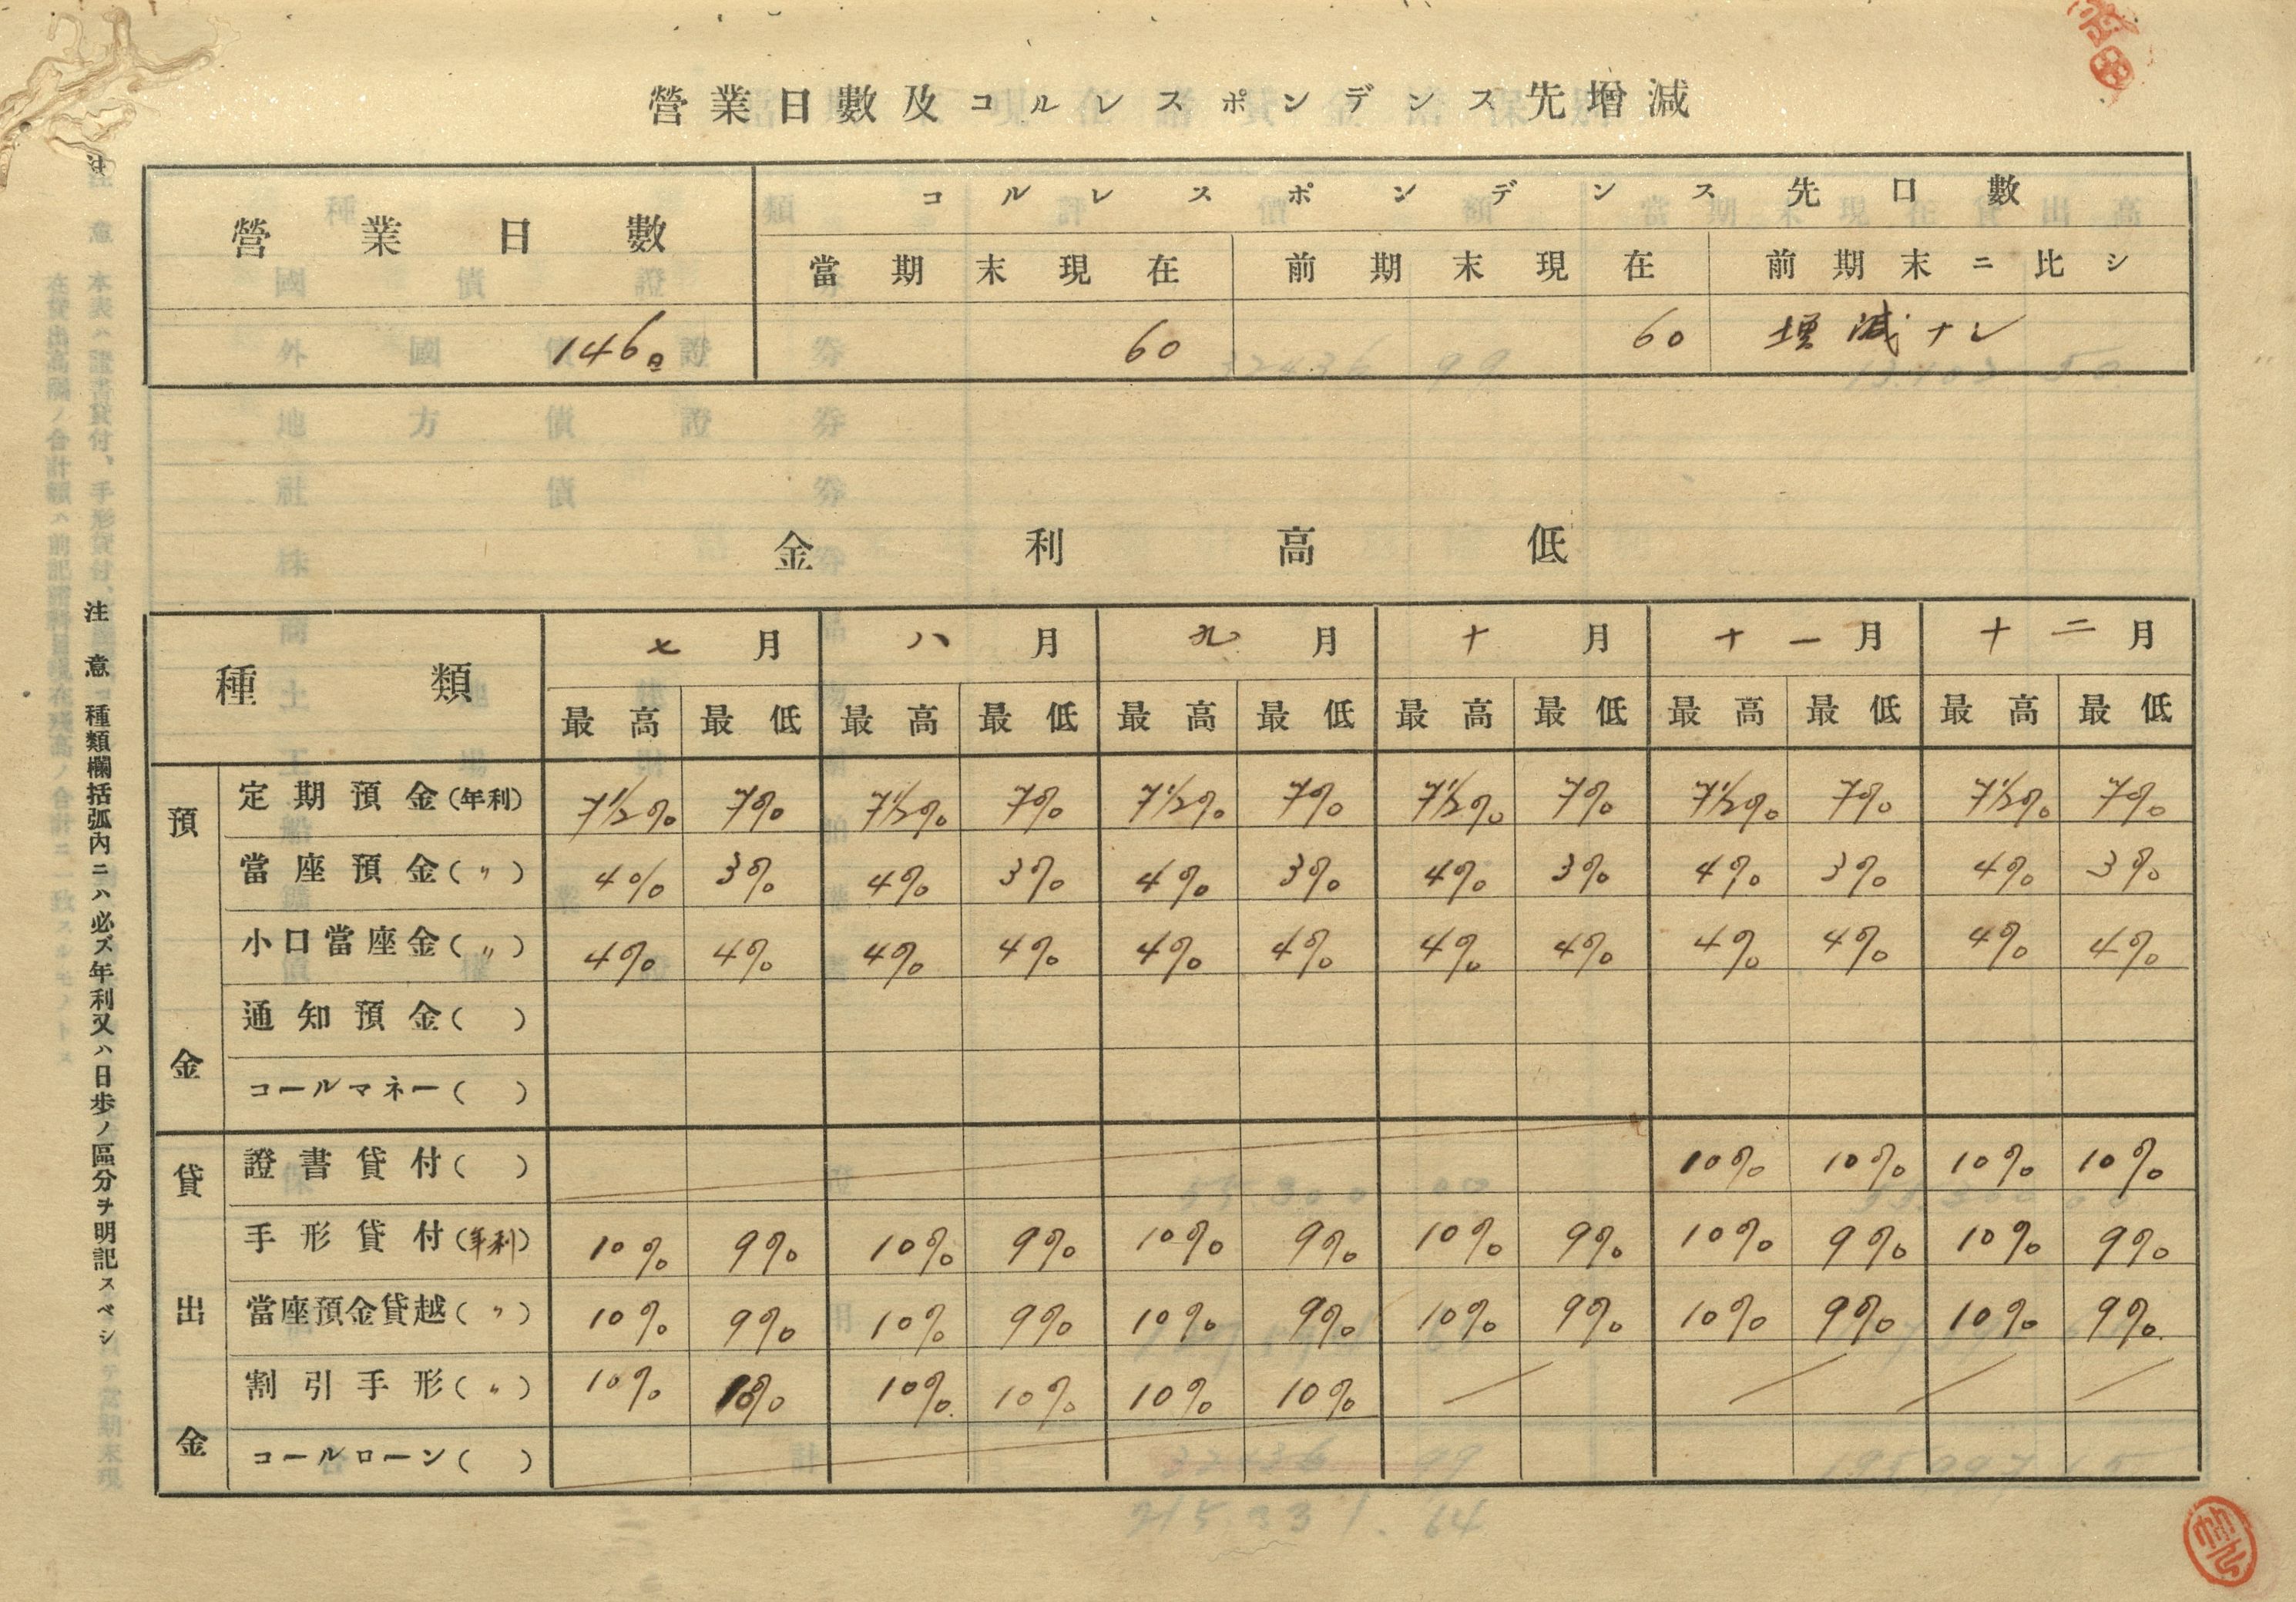 營業日數及コルレスポンデンス先增減
營業日數
コルレスポンデンス先口數
當期末現在 前期末現在 前期末ニ比シ
146日 60 60 增減ナシ
金利高低
種類 七月 八月 九月 十月 十一月 十二月
最高 最低 最高 最低 最高 最低 最高 最低 最高 最低 最高 最低
預金
定期預金(年利) 7½% 7% 7½% 7% 7½% 7% 7½% 7% 7½% 7% 7½% 7%
當座預金(〃) 4% 3% 4% 3% 4% 3% 4% 3% 4% 3% 4% 3%
小口當座金(〃) 4% 4% 4% 4% 4% 4% 4% 4% 4% 4% 4% 4%
通知預金( )
コールマネー( )
貸出金
證書貸付( ) 10% 10% 10% 10%
手形貸付(年利) 10% 9% 10% 9% 10% 9% 10% 9% 10% 9% 10% 9%
當座預金貸越(〃) 10% 9% 10% 9% 10% 9% 10% 9% 10% 9% 10% 9%
割引手形(〃) 10% 10% 10% 10% 10% 10%
コールローン( )
注意 種類欄括弧內ニハ必ズ年利又ハ日歩ノ區分ヲ明記スベシ